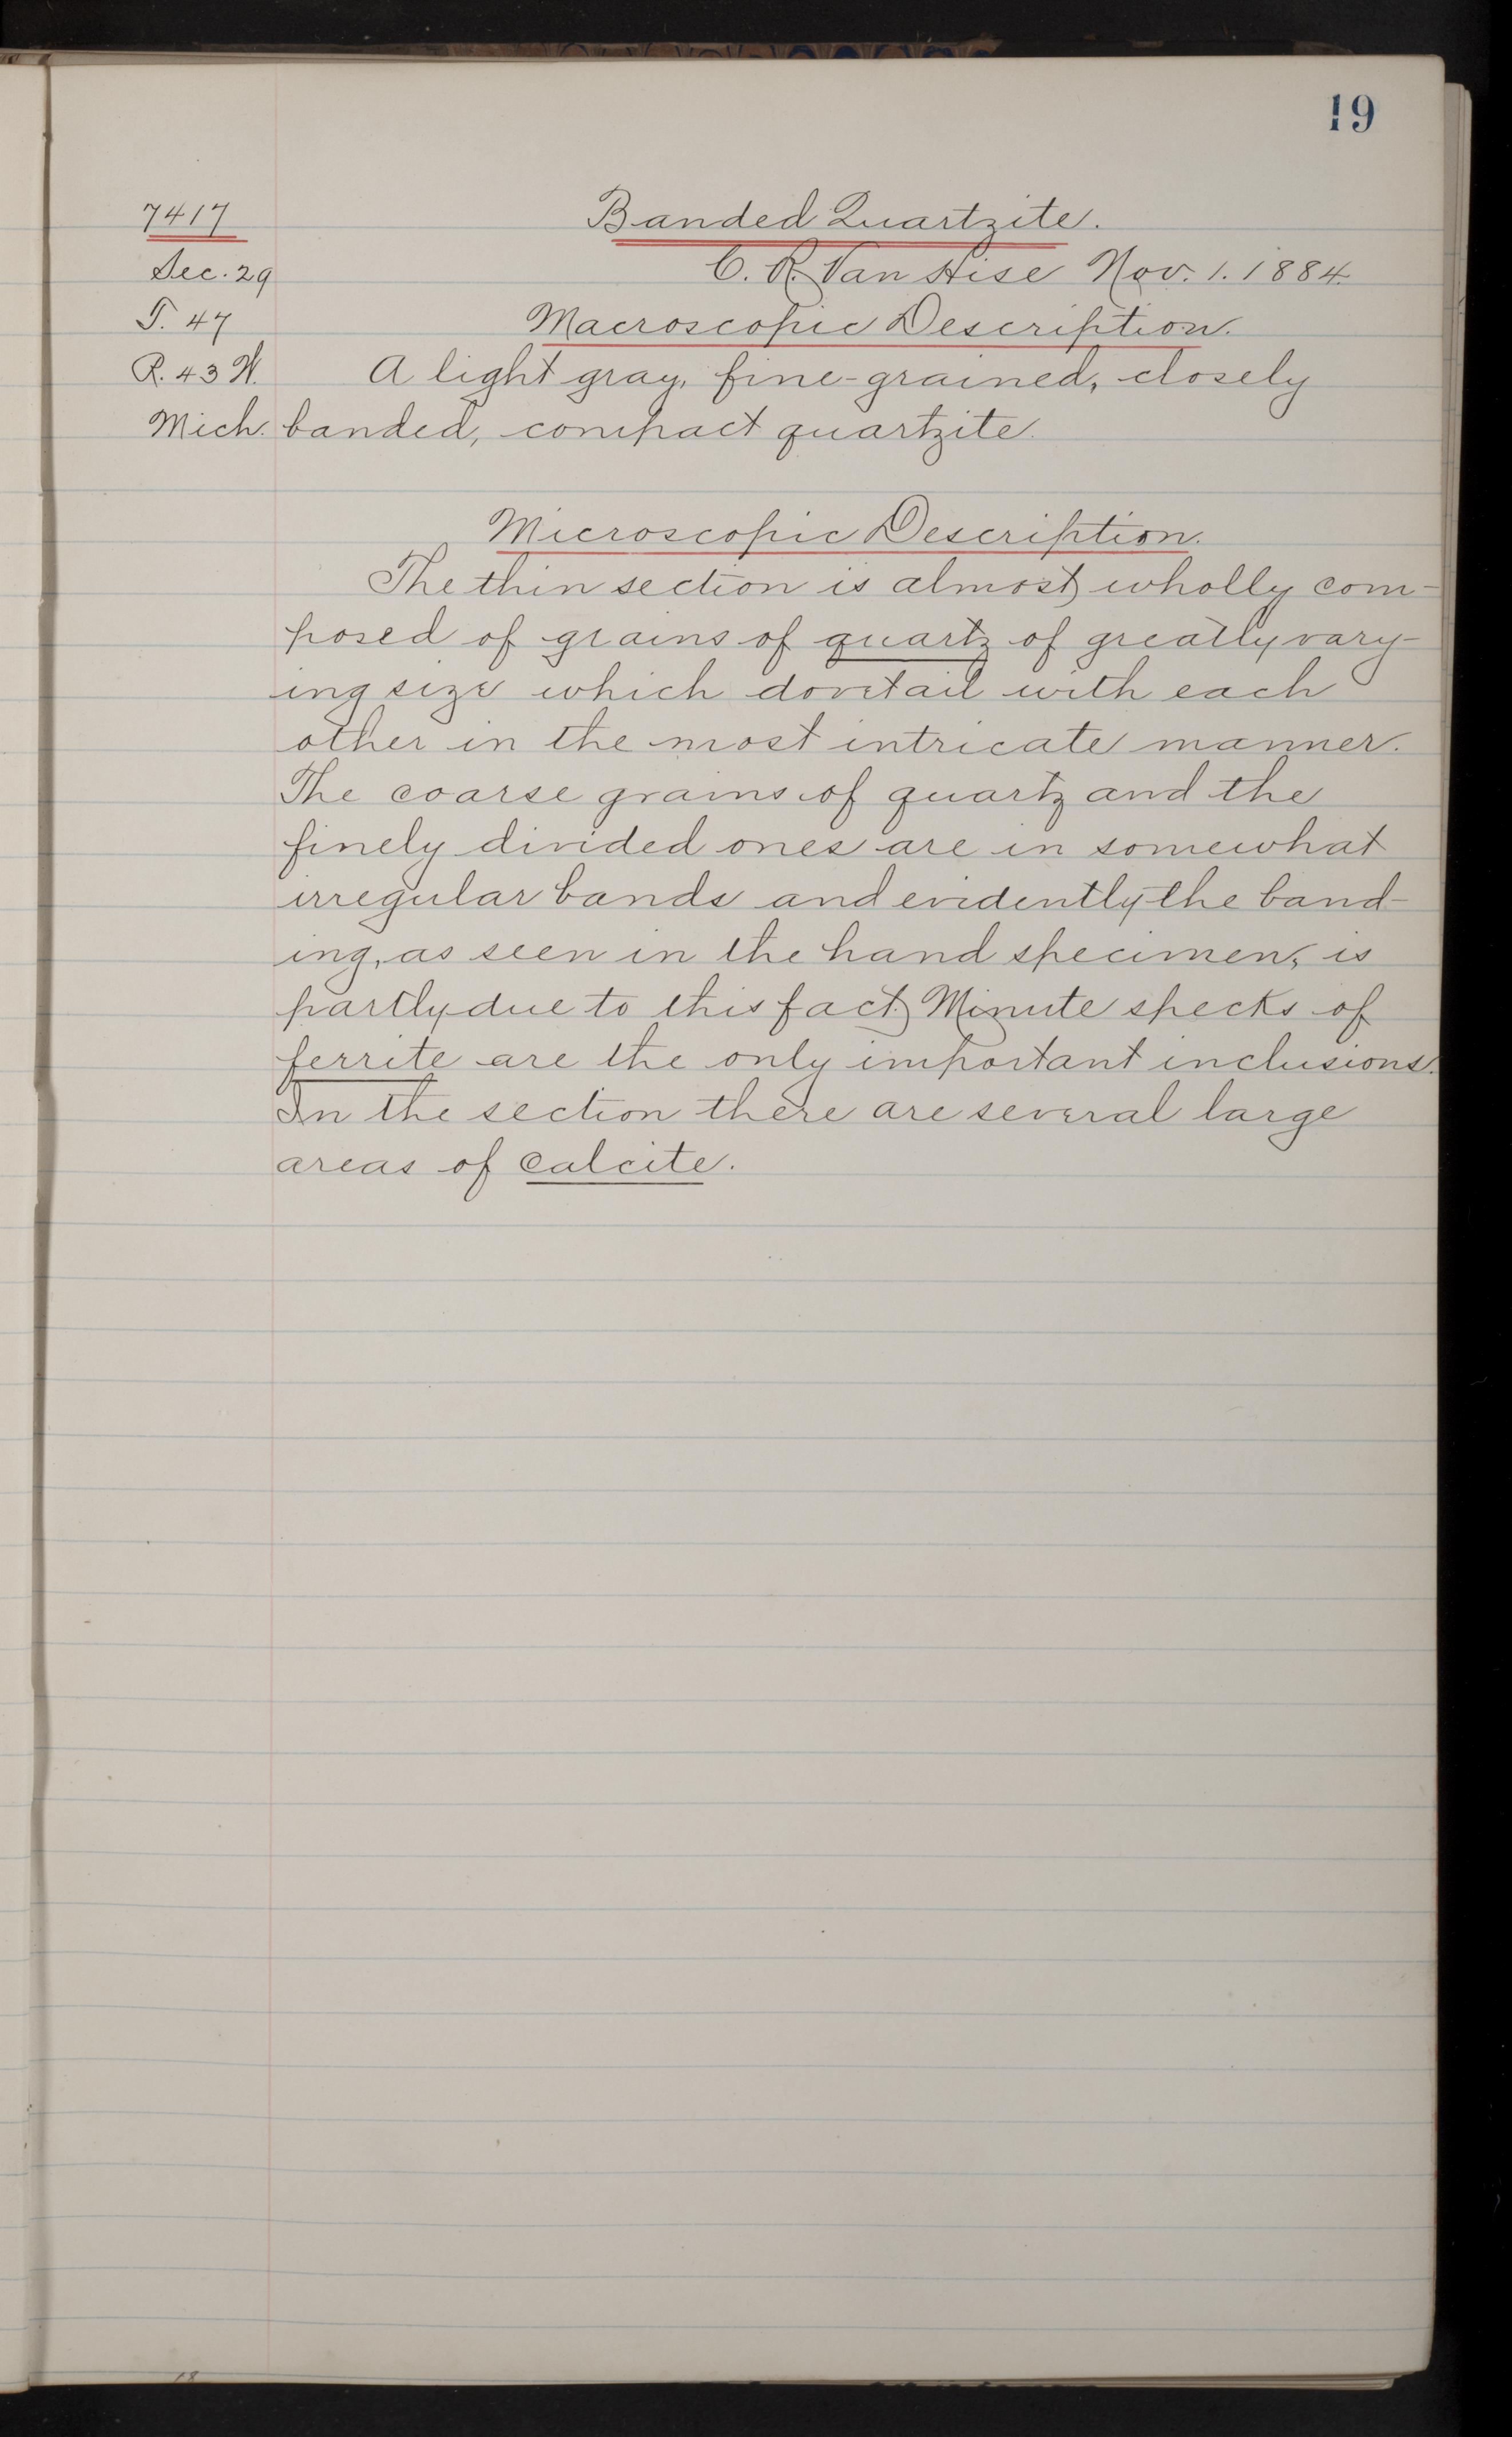 19
7417
Banded Quartzite.
Sec. 29
C. R. Van Hise Nov. 1. 1884.
T. 47
Macroscopic Description.
R. 43 W.
A light gray, fine-grained, closely
Mich.
banded, compact quartzite.
Microscopic Description.
The thin section is almost wholly com-
posed of grains of quartz of greatly vary-
ing size which dovetail with each
other in the most intricate manner.
The coarse grains of quartz and the
finely divided ones are in somewhat
irregular bands and evidently the band-
ing, as seen in the hand specimen, is
partly due to this fact. Minute specks of
ferrite are the only important inclusions.
In the section there are several large
areas of calcite.
18